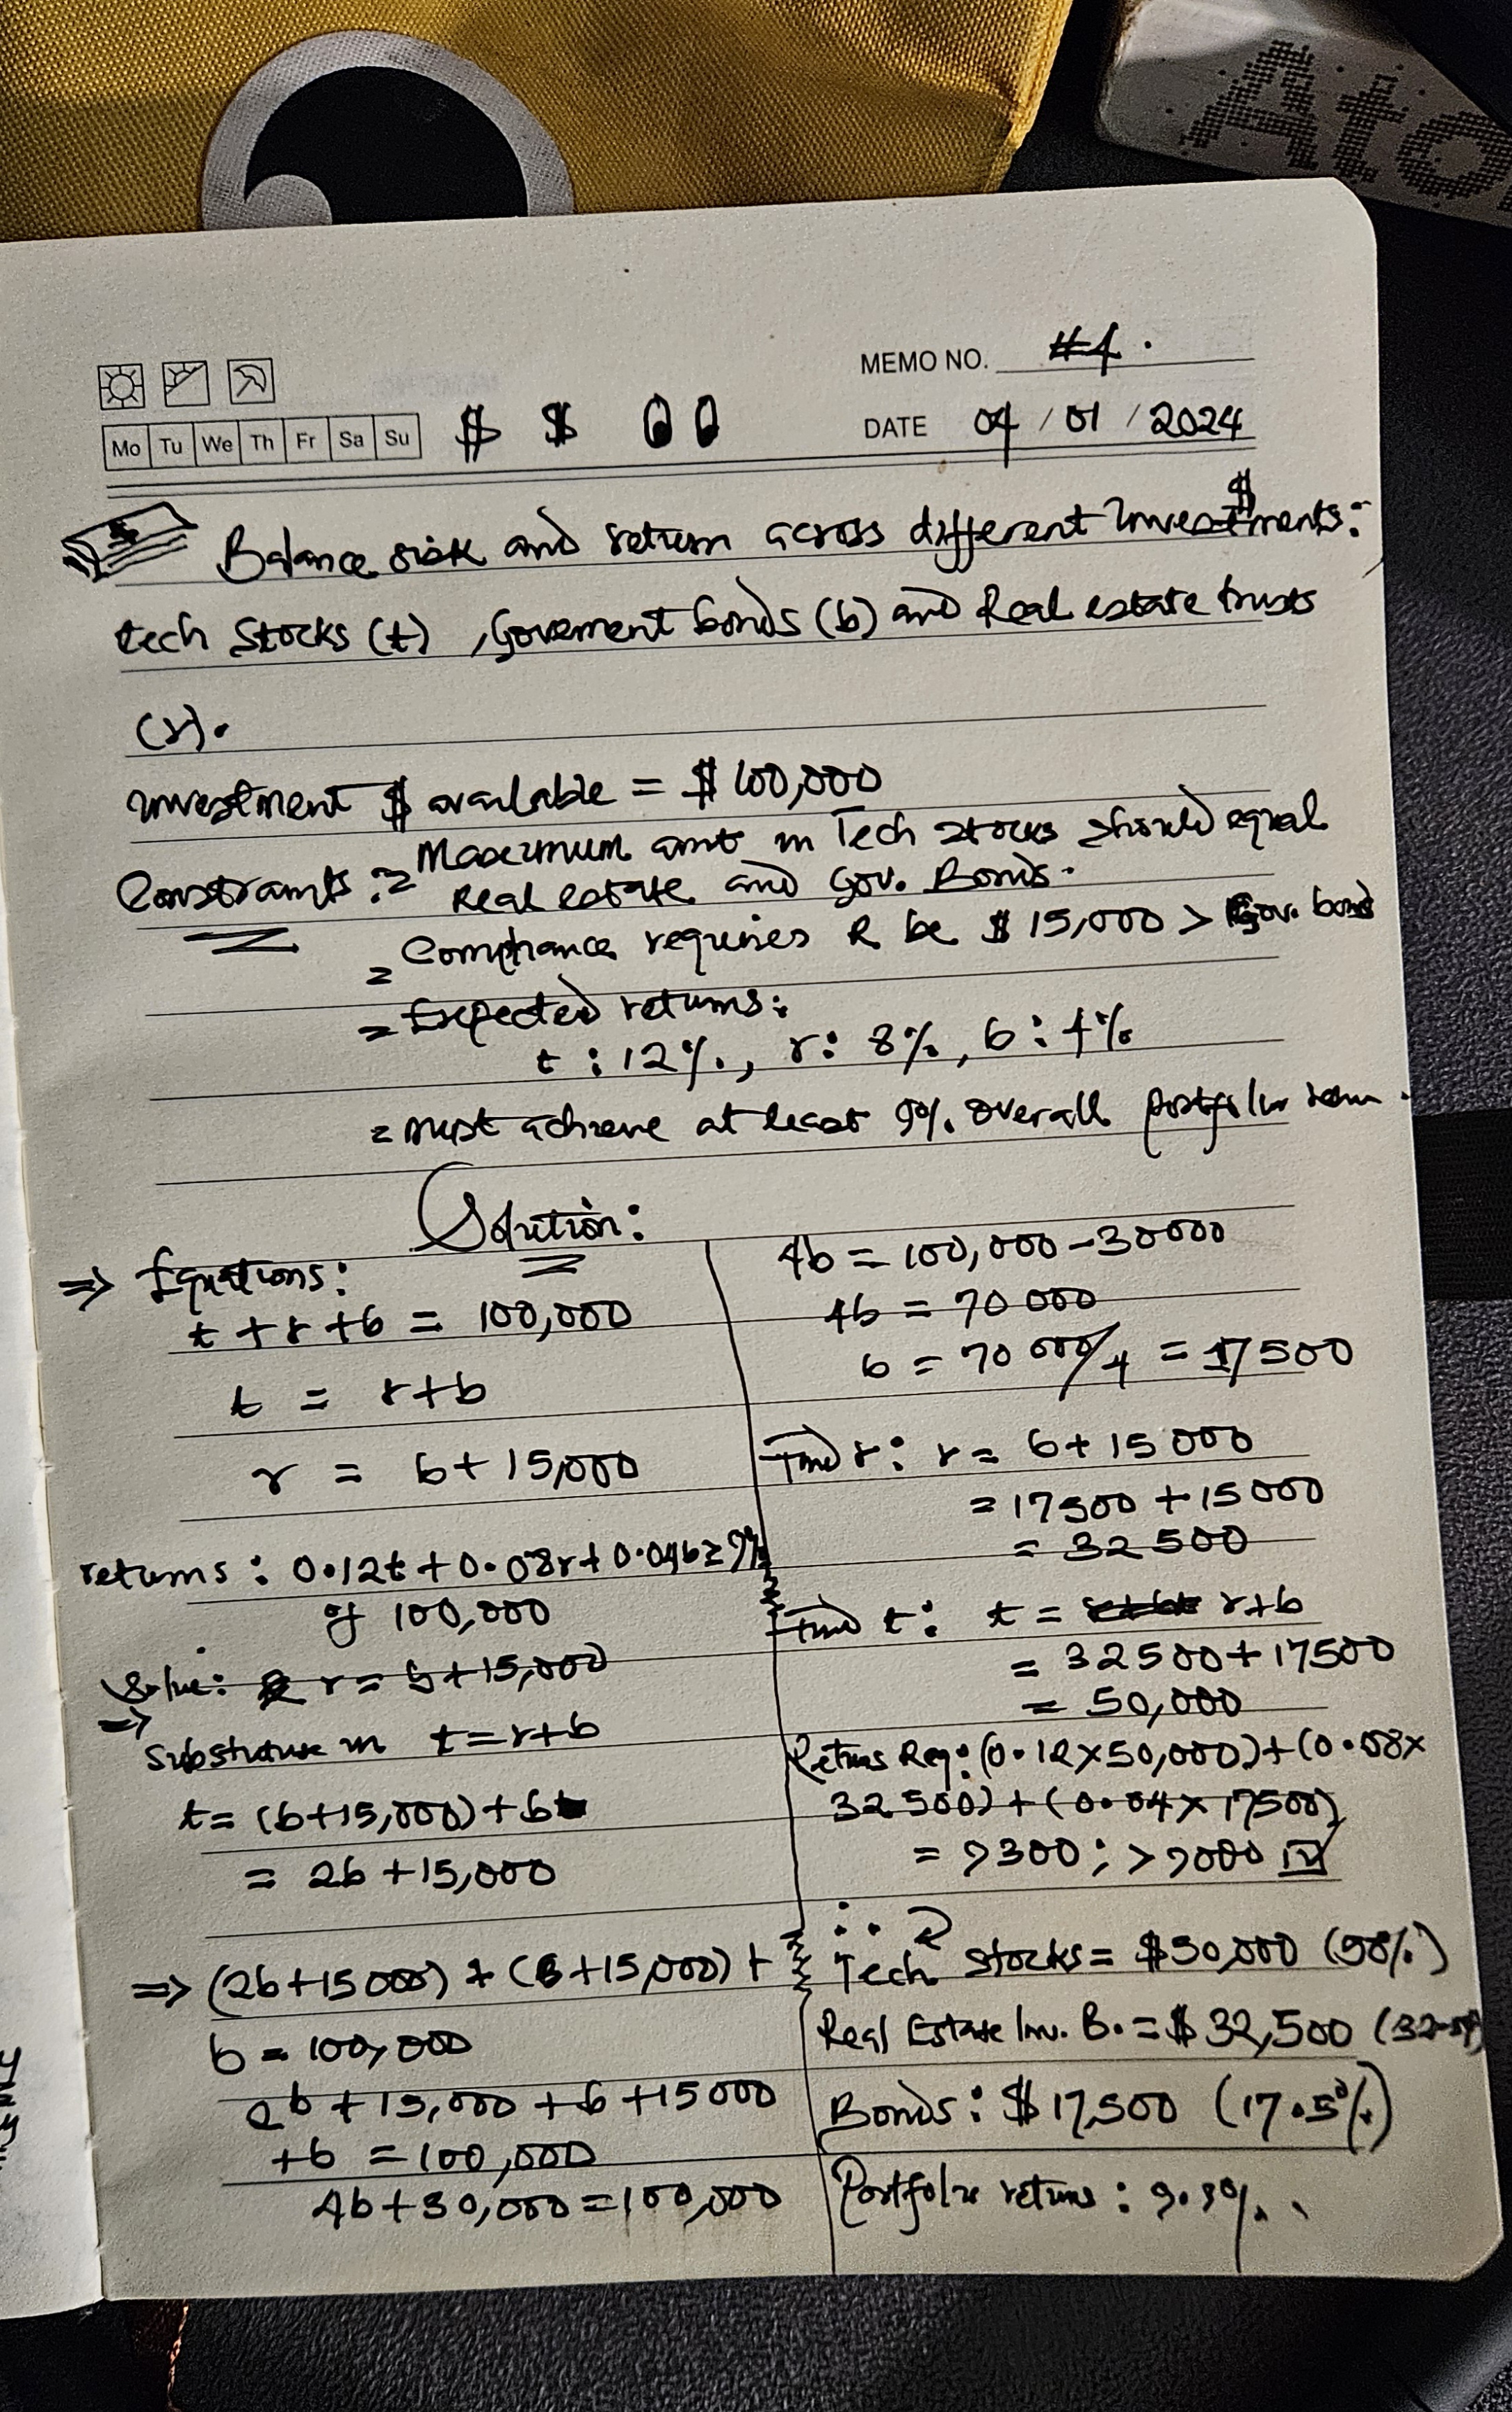 Ato
MEMO NO. #1.
Mo Tu We Th Fr Sa Su $ $
DATE 04 / 01 / 2024
Balance risk and return across different Inve$tments:
tech Stocks (t), Goverment bonds (b) and Real estate trusts
(r).
investment $ available = $ 100,000
Constraints := Maximum amt in Tech stocks should equal
Real estate and Gov. Bonds.
= Compliance requires R be $ 15,000 > Gov. bond
= Expected returns:
t : 12%, r: 8%, b: 4%
= must achieve at least 9% overall portfolio
Solution:
=> Equations:
t + r + b = 100,000
t = r+b
r = b+15,000
returns: 0.12t + 0.08r + 0.04b ≥ 9%
of 100,000
Solve: r = b+15,000
=>
Substitute in t=r+b
t= (b+15,000)+b
= 2b+15,000
=> (2b+15000) + (b+15,000) +
b = 100,000
2b + 15,000 + b + 15000
+b = 100,000
4b+30,000=100,000
4b = 100,000-30000
4b = 70 000
b = 70 000/4 = 17500
Find r: r = b+ 15 000
= 17500 + 15000
= 32 500
Find t: t = r+b
= 32500+17500
= 50,000
Returns Req: (0.12×50,000)+(0.08×
32500)+(0.04×17500)
= 9300; >9000 ☑
∴
Tech Stocks= $50,000 (50%)
Real Estate Inv. B. = $ 32,500 (32.5%
Bonds: $ 17,500 (17.5%)
Portfolio returns: 9.3%